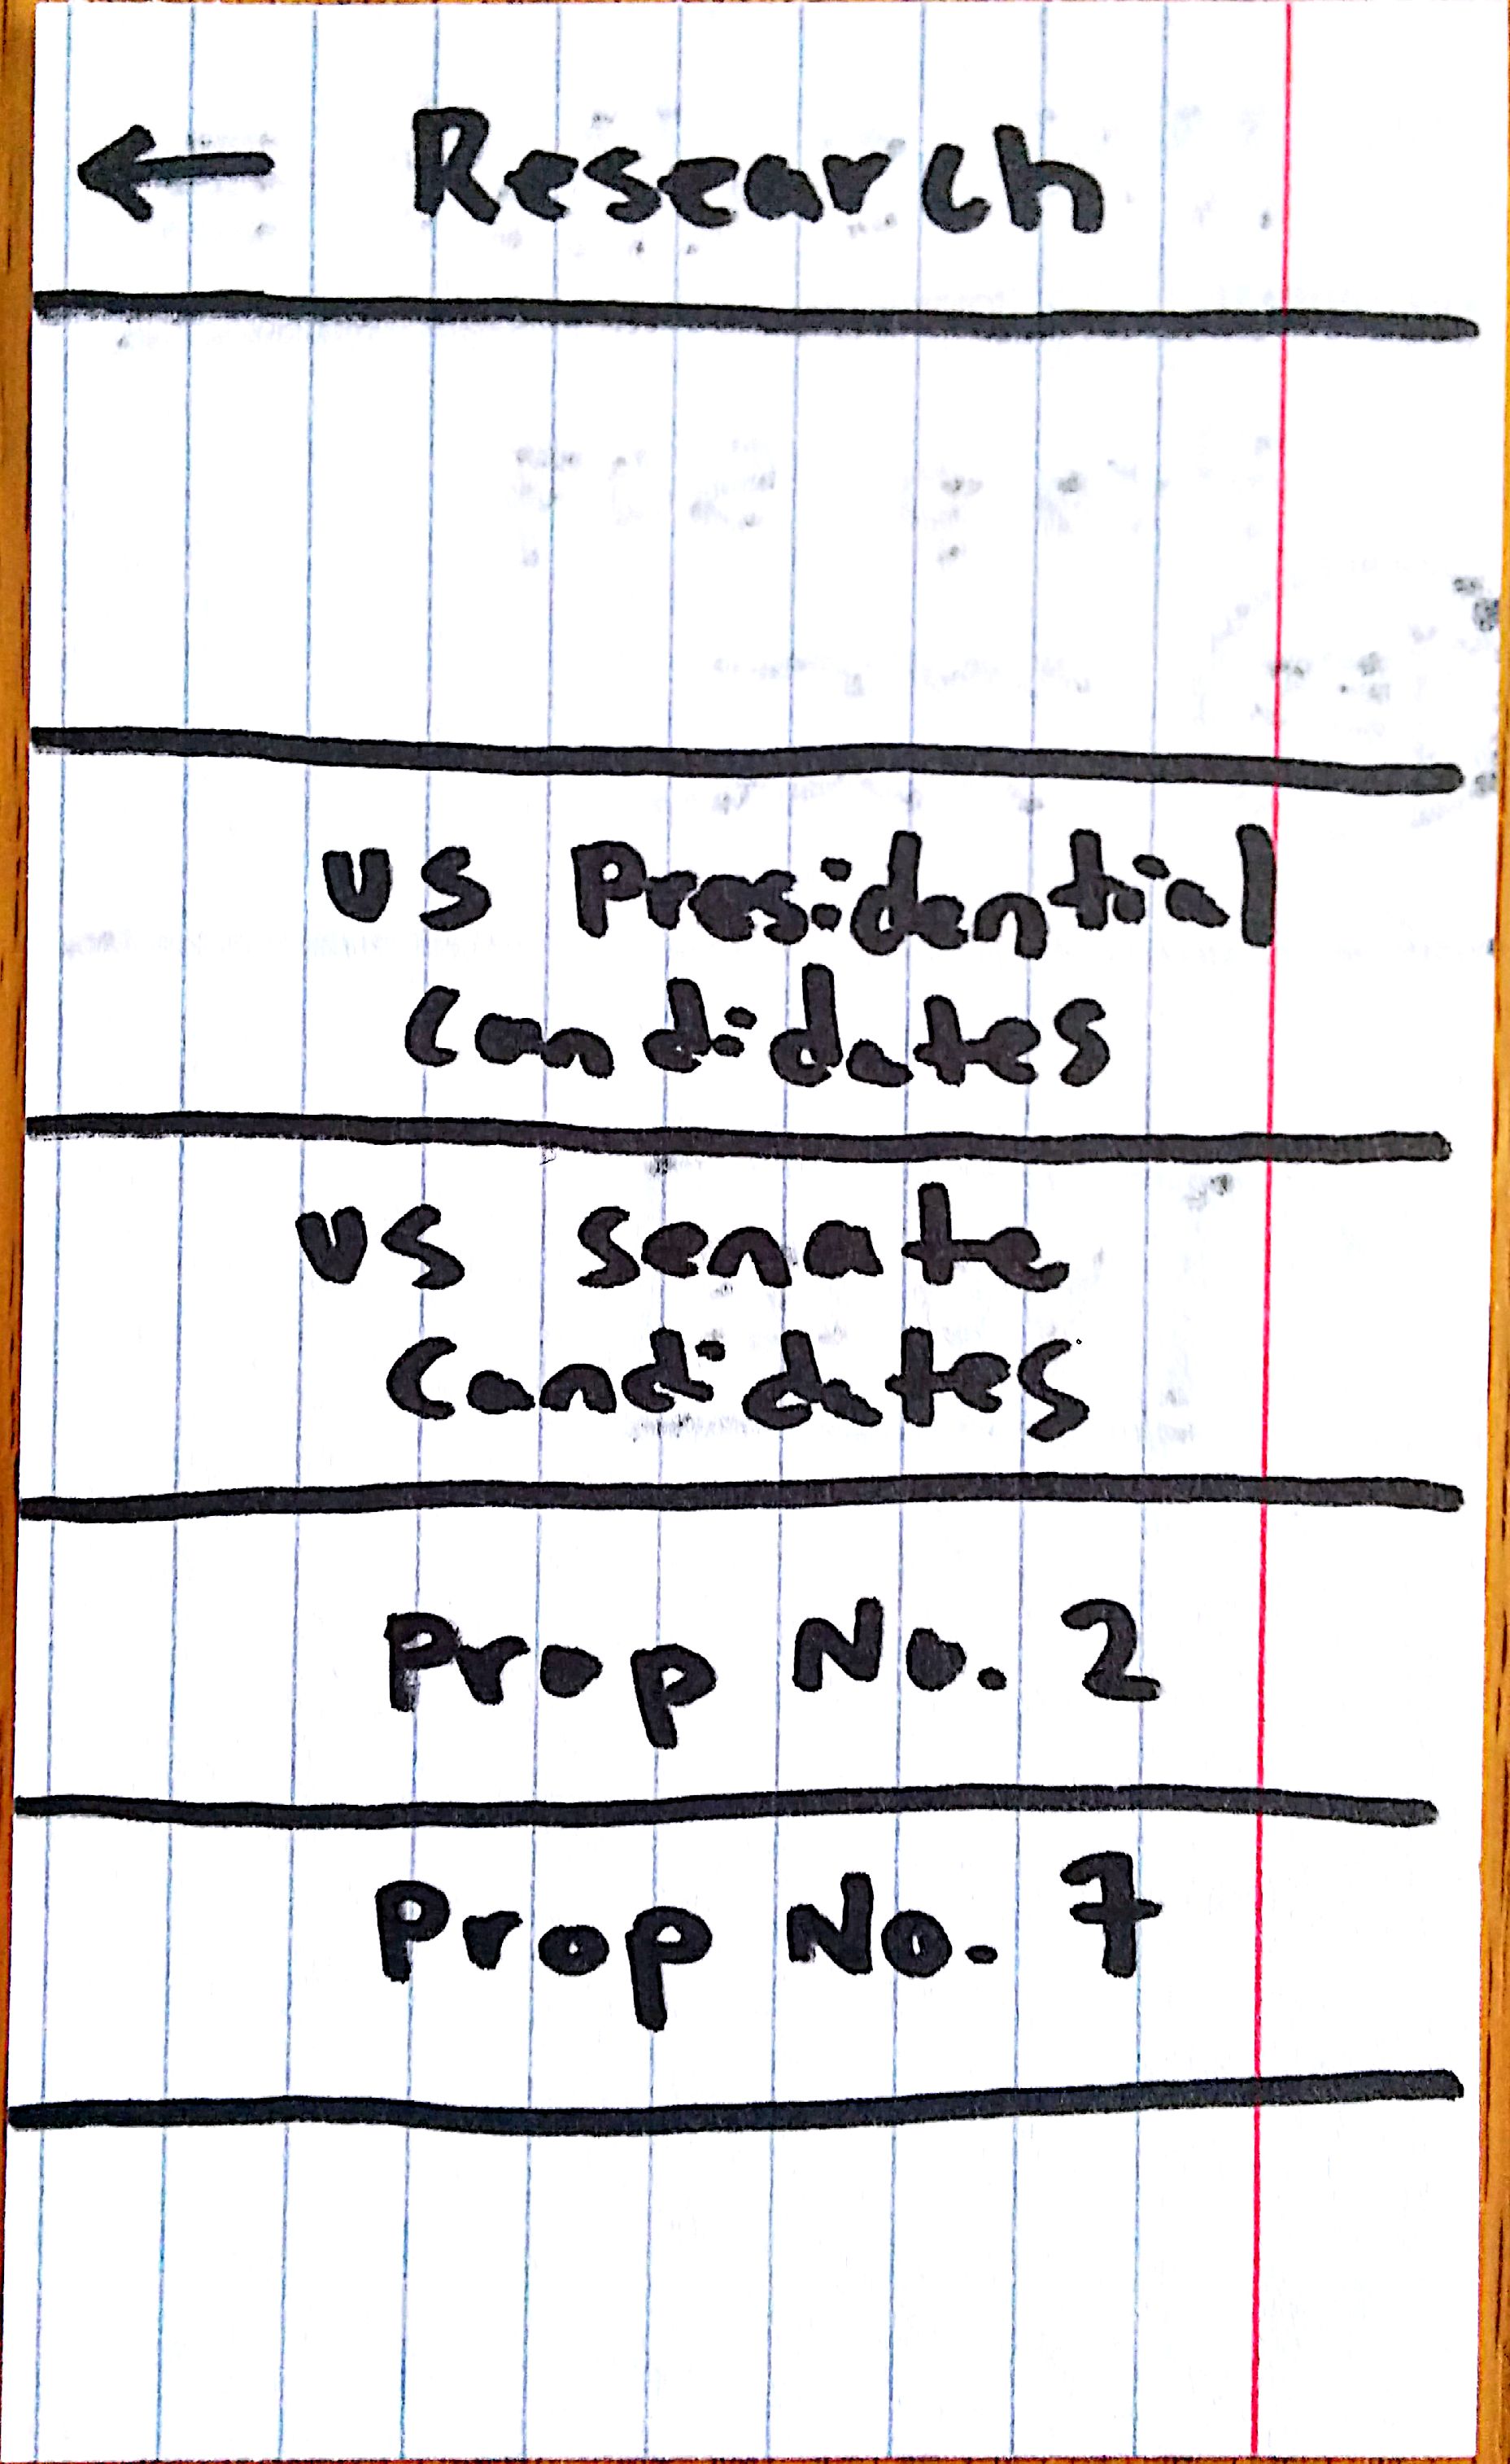 ← Research
US Presidential
Candidates
US Senate
Candidates
Prop No. 2
Prop No. 7